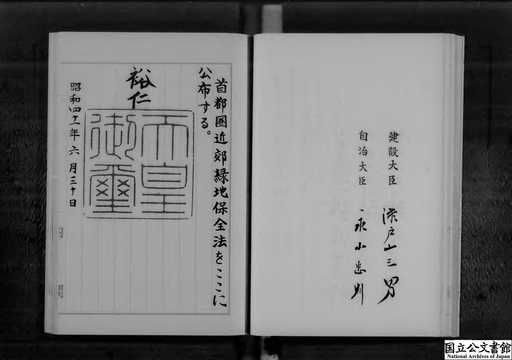 建設大臣 瀬戸山三男
自治大臣 永山忠則
首都圏近郊緑地保全法をここに
公布する。
裕仁
天皇
御璽
昭和四十一年六月三十日
国立公文書館
National Archives of Japan